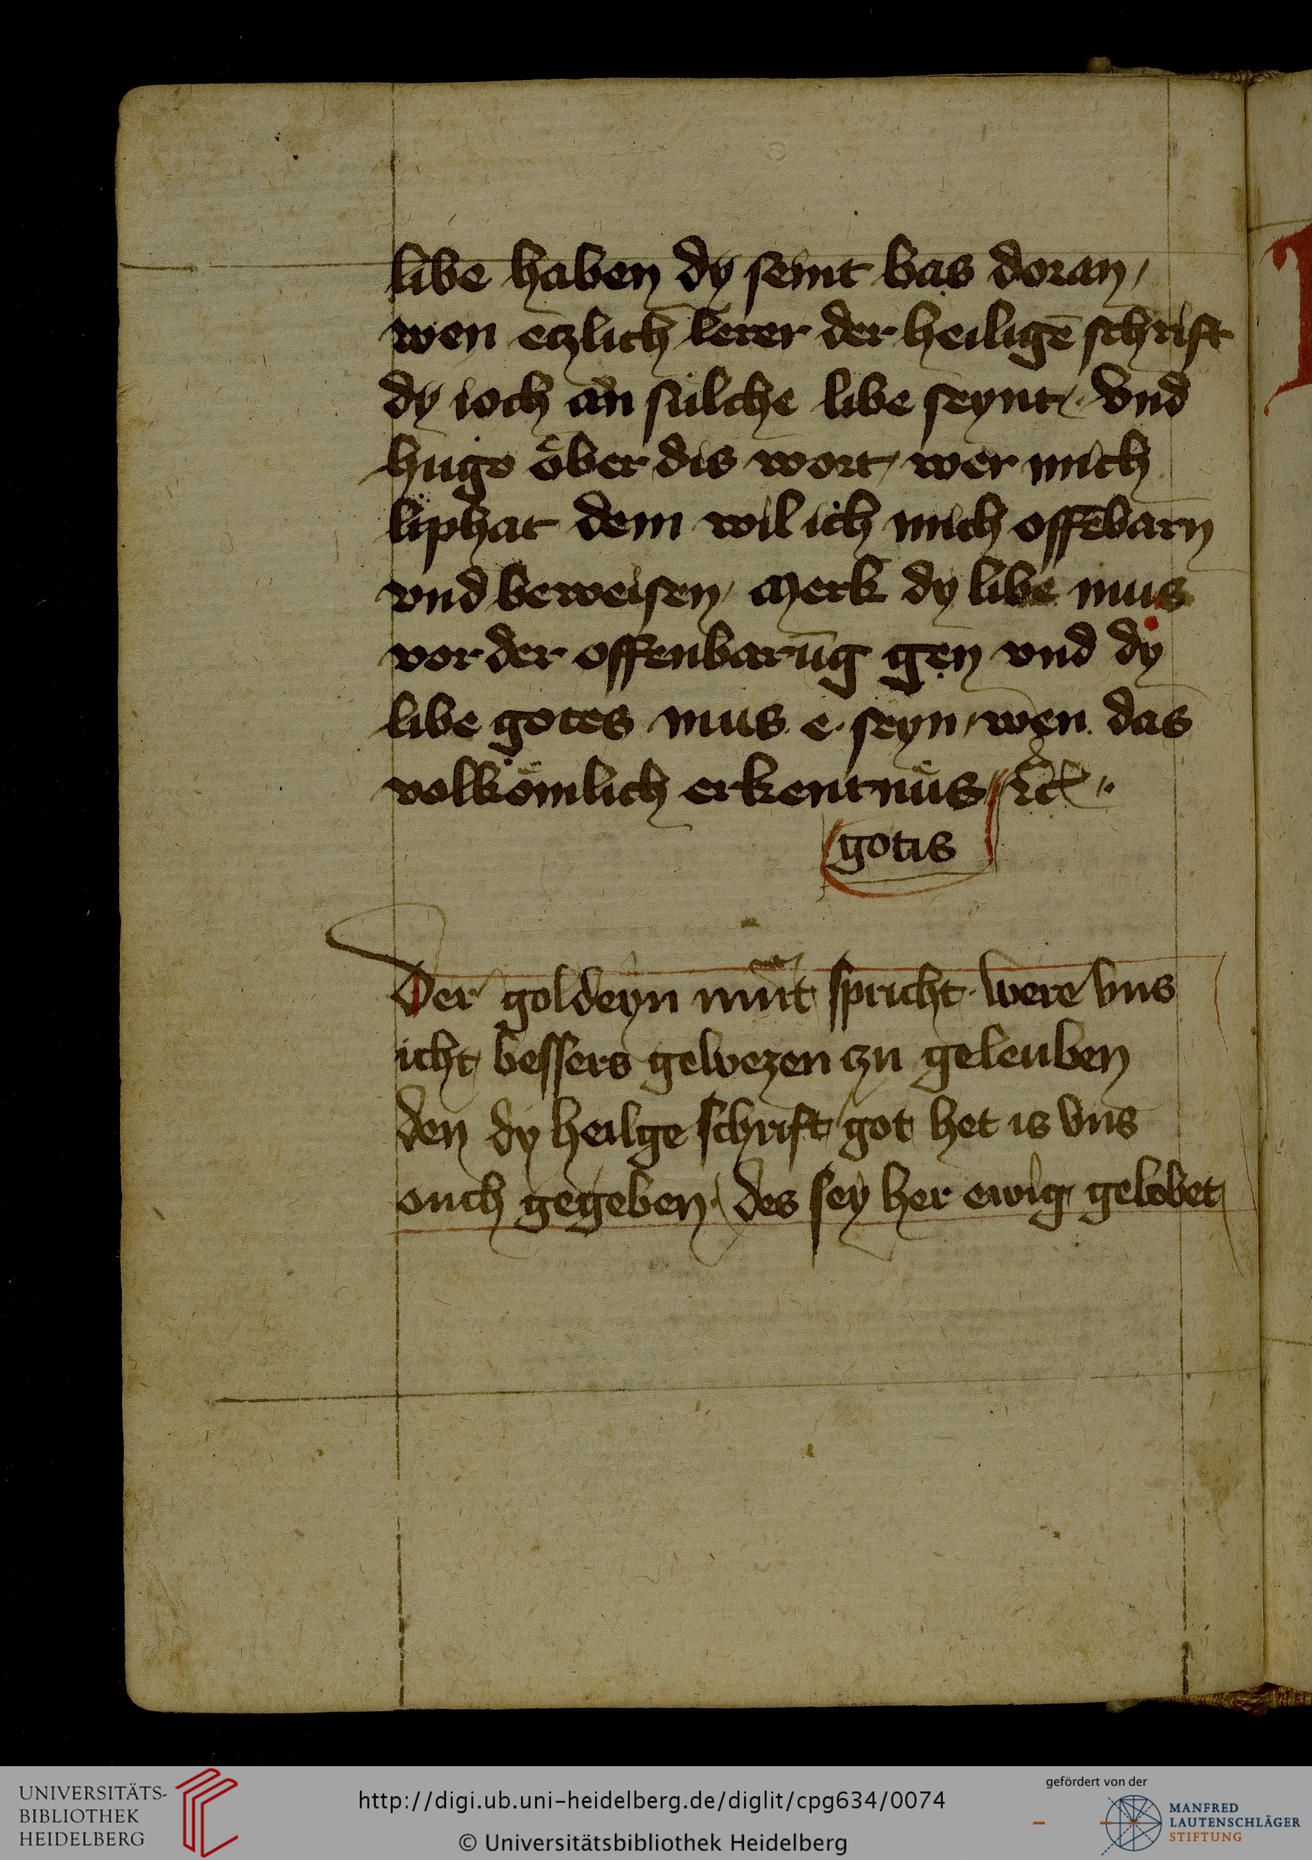 libe haben dy seint bas doran /
wen etzlich̄ lerer der heiligē schrift
dy ioch an sulche libe seynt / vnd
hugo öber dis wort / wer mich
liphat dem wil ich mich offēbarn
vnd beweisen / Merk dy libe mus
vor der offenbarūg gen vnd dy
libe gotes mus e seyn / wen das
volkömlich erkentnüs / ꝛc̄
gotis
Der goldeyn spricht were vns
icht bessers gewezen czu geleuben
den dy heilge schrift got het is vns
ouch gegeben / des sey her ewig gelobet
UNIVERSITÄTS-
BIBLIOTHEK
HEIDELBERG
http://digi.ub.uni-heidelberg.de/diglit/cpg634/0074
© Universitätsbibliothek Heidelberg
gefördert von der
MANFRED
LAUTENSCHLÄGER
STIFTUNG